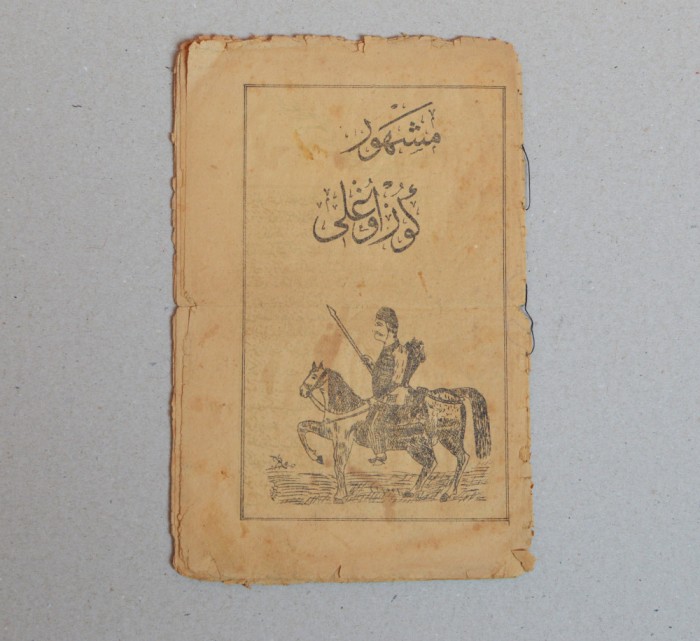 مشهور
كُوُرْ اوُغلى